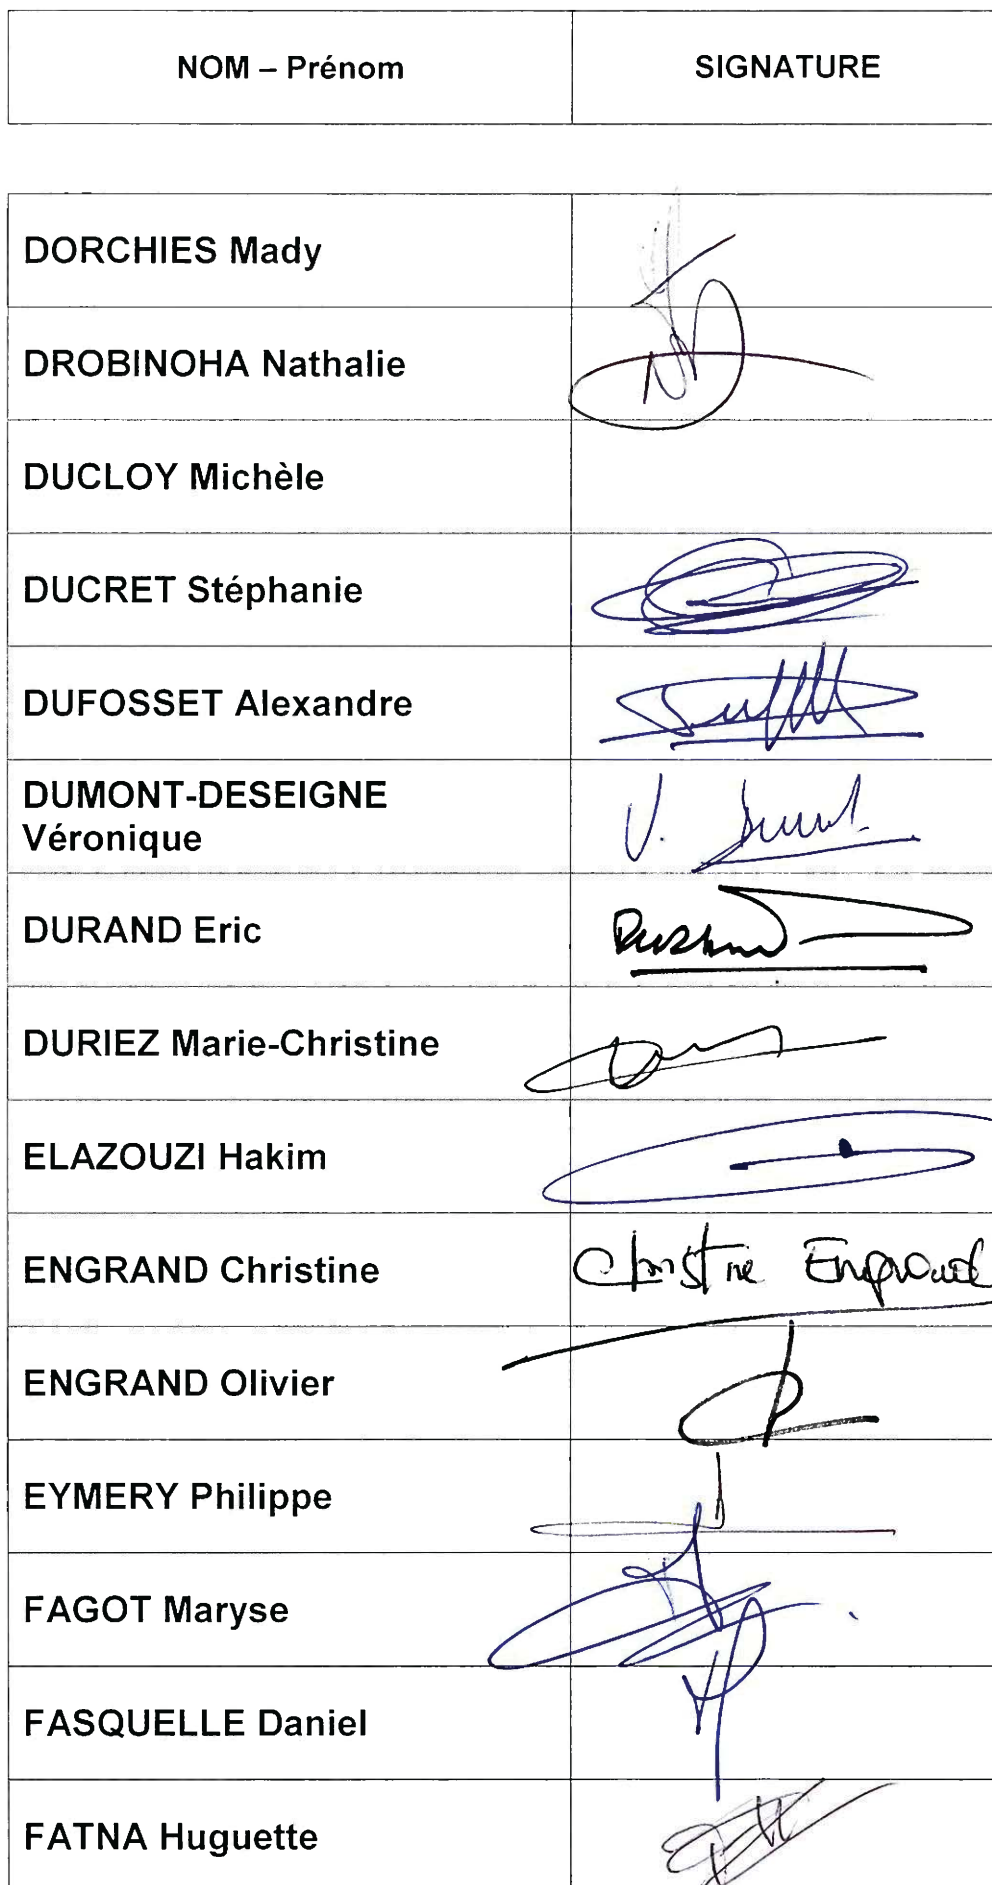 NOM – Prénom SIGNATURE
DORCHIES Mady
DROBINOHA Nathalie
DUCLOY Michèle
DUCRET Stéphanie
DUFOSSET Alexandre
DUMONT-DESEIGNE
Véronique
V. Dumont
DURAND Eric Durand
DURIEZ Marie-Christine
ELAZOUZI Hakim
ENGRAND Christine Christine Engrand
ENGRAND Olivier
EYMERY Philippe
FAGOT Maryse
FASQUELLE Daniel
FATNA Huguette